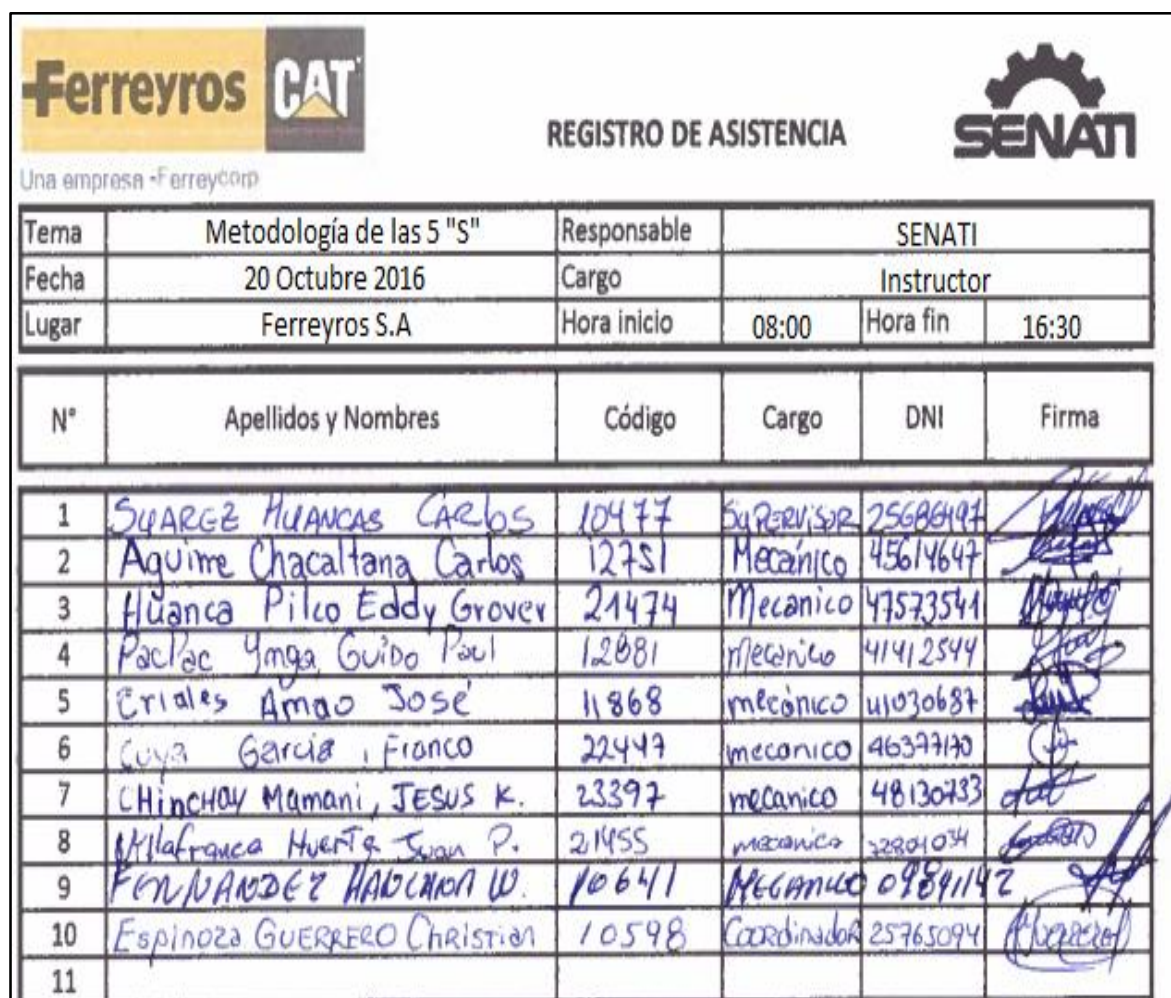 Ferreyros CAT
Una empresa Ferreycorp
REGISTRO DE ASISTENCIA
SENATI
Tema Metodología de las 5 "S" Responsable SENATI
Fecha 20 Octubre 2016 Cargo Instructor
Lugar Ferreyros S.A Hora inicio 08:00 Hora fin 16:30
N° Apellidos y Nombres Código Cargo DNI Firma
1 SUAREZ HUANCAS CARLOS 10477 SUPERVISOR 25686497
2 Aguirre Chacaltana Carlos 12751 Mecánico 45614647
3 Huanca Pilco Eddy Grover 21474 Mecanico 47573541
4 Pacpac Ynga Guido Paul 12881 Mecanico 41412544
5 Criales Amao José 11868 mecánico 41030687
6 Cuya Garcia, Franco 22447 mecanico 46377170
7 CHINCHAY Mamani, JESUS K. 23397 mecanico 48130733
8 Villafranca Huerta Juan P. 21455 mecanico
9 FERNANDEZ W. 10641 MECANICO 09841142
10 Espinoza GUERRERO CHRISTIAN 10598 Coordinador 25765094
11